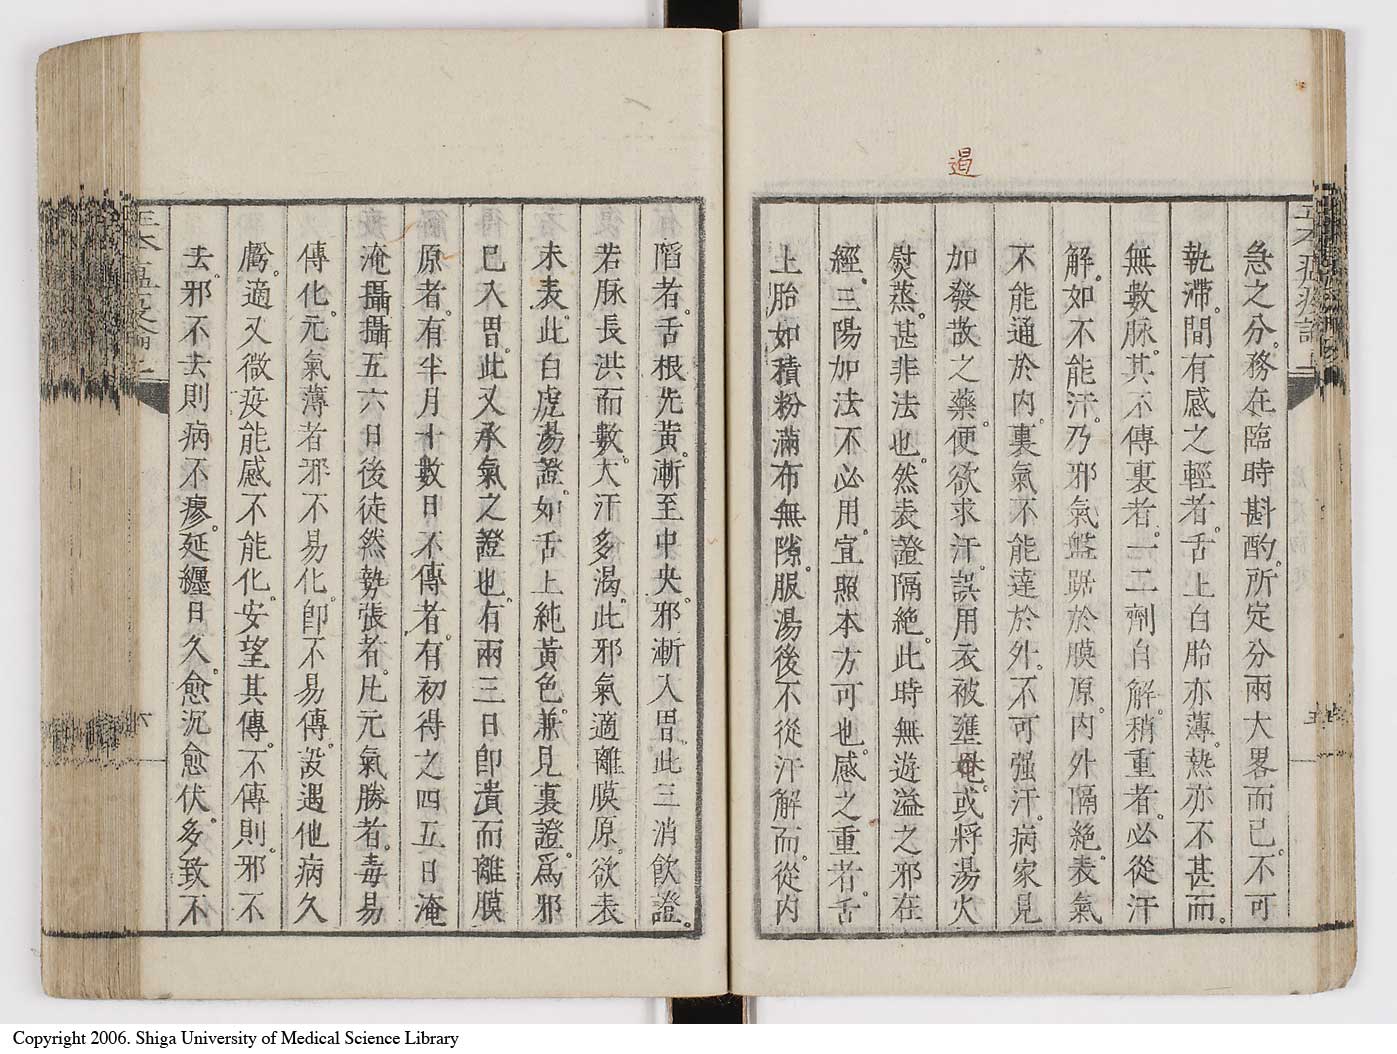 遏
急之分。務在臨時斟酌。所定分兩大畧而已。不可
執滯。間有感之輕者。舌上白胎亦薄。熱亦不甚而。
無數脉。其不傳裏者。一二劑自解。稍重者。必從汗
解。如不能汗。乃邪氣盤踞於膜原。内外隔絶。表氣
不能通於内。裏氣不能達於外。不可强汗。病家見
加發散之藥。便欲求汗。誤用衣被壅遏。或將湯火
熨蒸。甚非法也。然表證隔絶。此時無遊溢之邪在
經。三陽加法不必用。宜照本方可也。感之重者。舌
上胎如積粉滿布無隙。服湯後不從汗解而從内
陷者。舌根先黄。漸至中央。邪漸入胃。此三消飲證。
若脉長洪而數。大汗多渴。此邪氣適離膜原。欲表
未表。此白虎湯證。如舌上純黄色。兼見裏證。爲邪
已入胃。此又承氣之證也。有兩三日即潰而離膜
原者。有半月十數日不傳者。有初得之四五日淹
淹攝攝五六日後徒然勢張者。凡元氣勝者。毒易
傳化。元氣薄者邪不易化。即不易傳。設遇他病久
虧。適又微疫能感不能化。安望其傳。不傳則。邪不
去。邪不去則病不瘳。延纏日久。愈沉愈伏。多致不